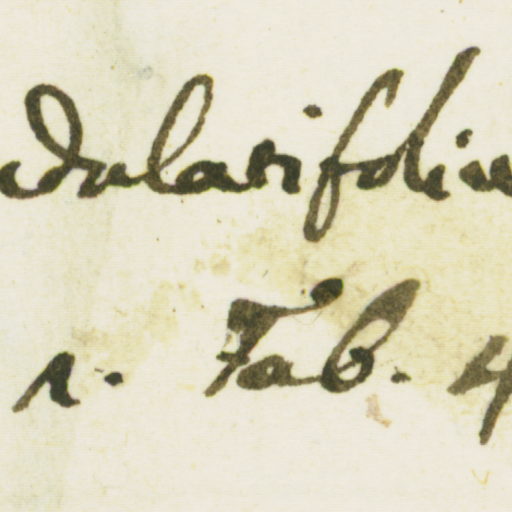 dulatifoliu
r. Tab. 4